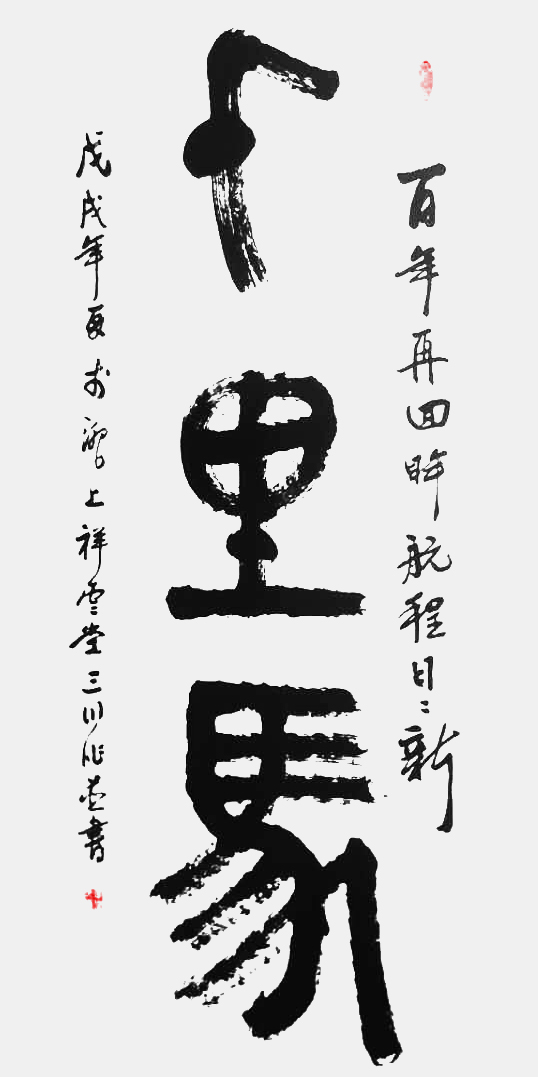 百年再回眸航程日々新
千里馬
戊戌年夏於上祥雲堂三川作並書